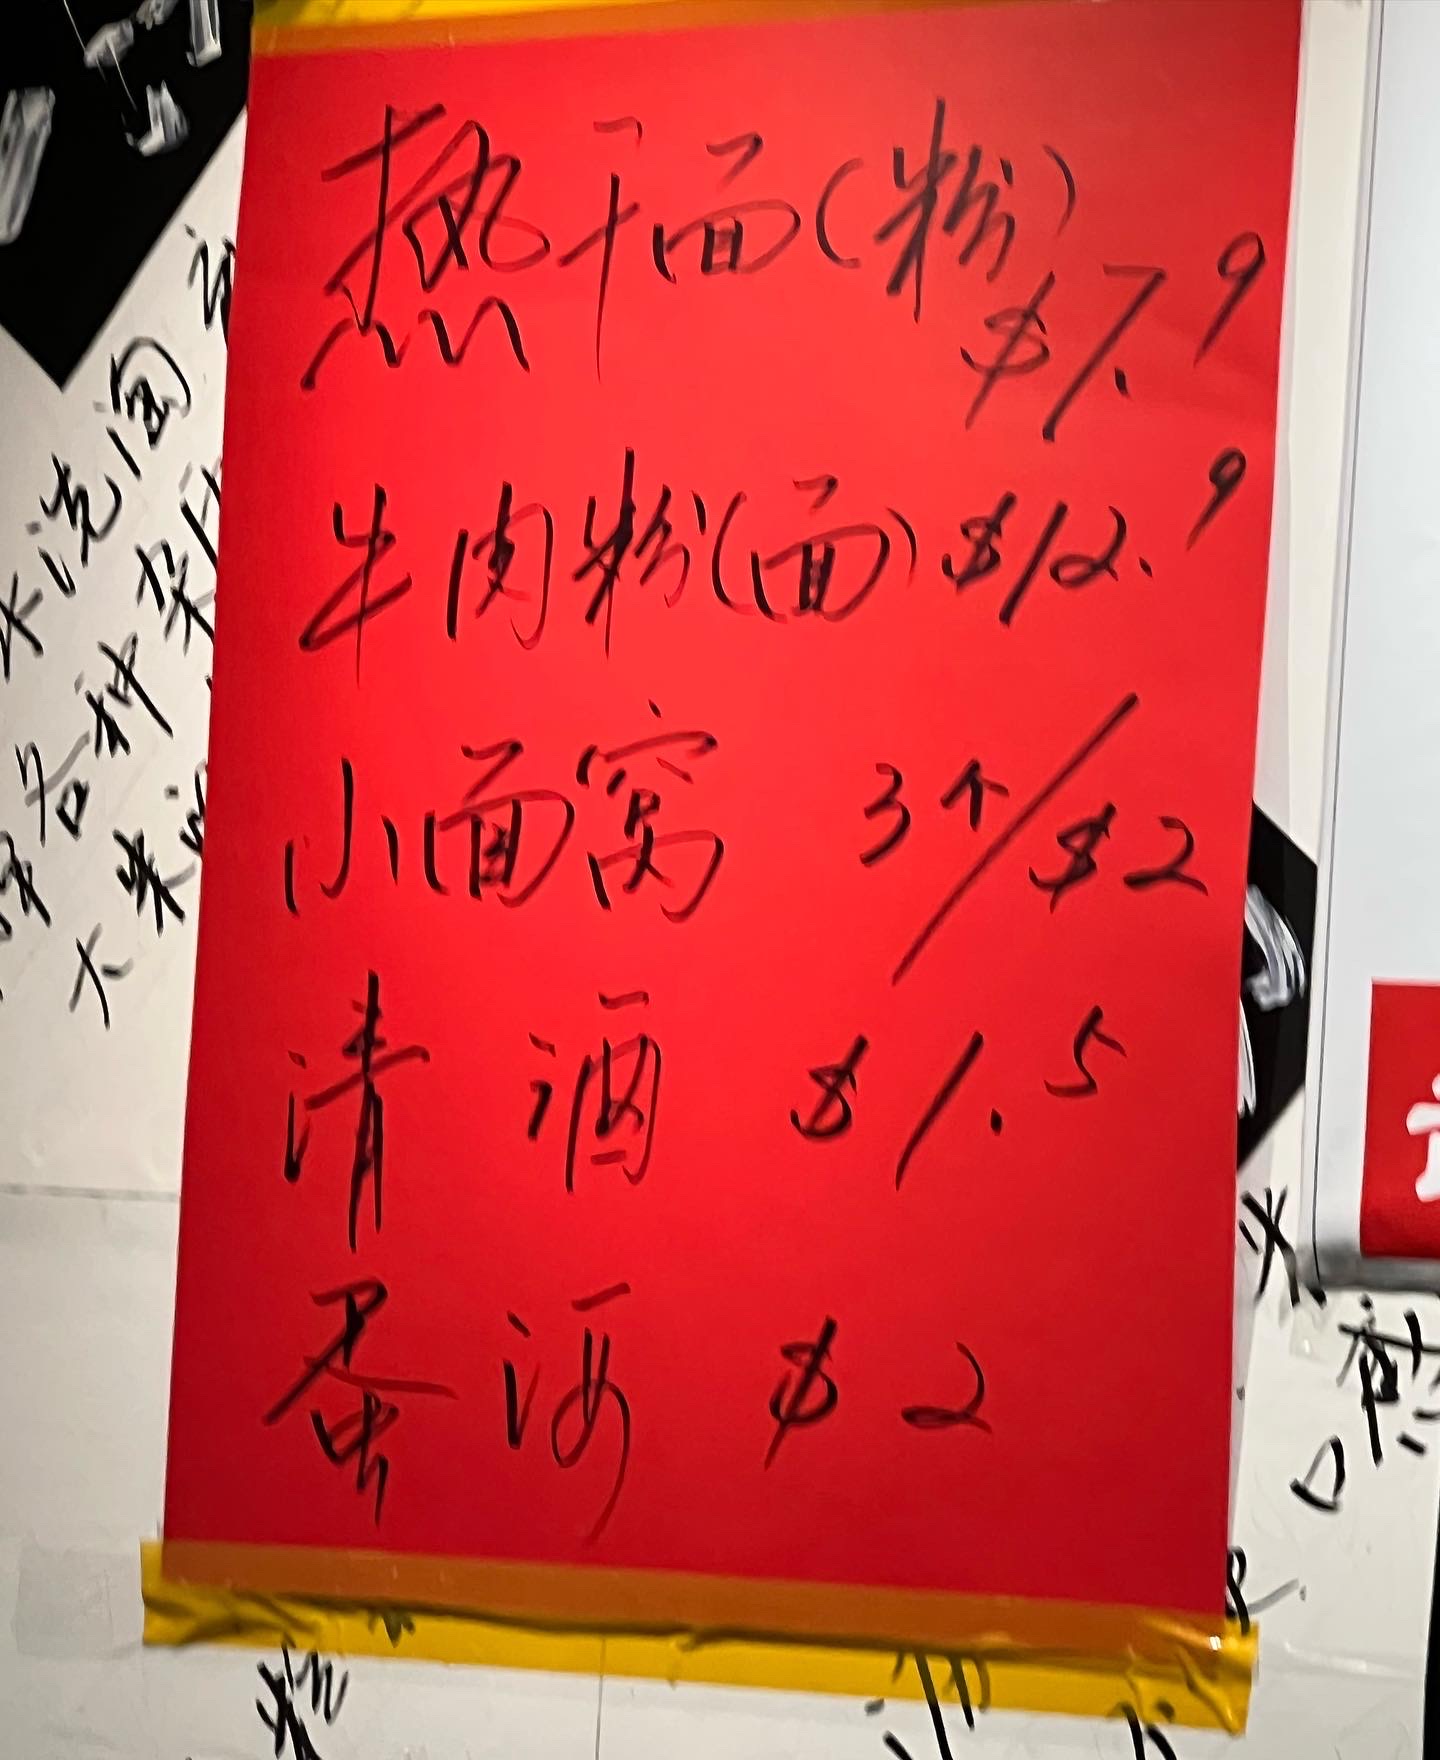 热干面(粉)
$7.9
牛肉粉(面) $12.9
小面窝 3个/$2
清酒 $1.5
蛋酒 $2
各种